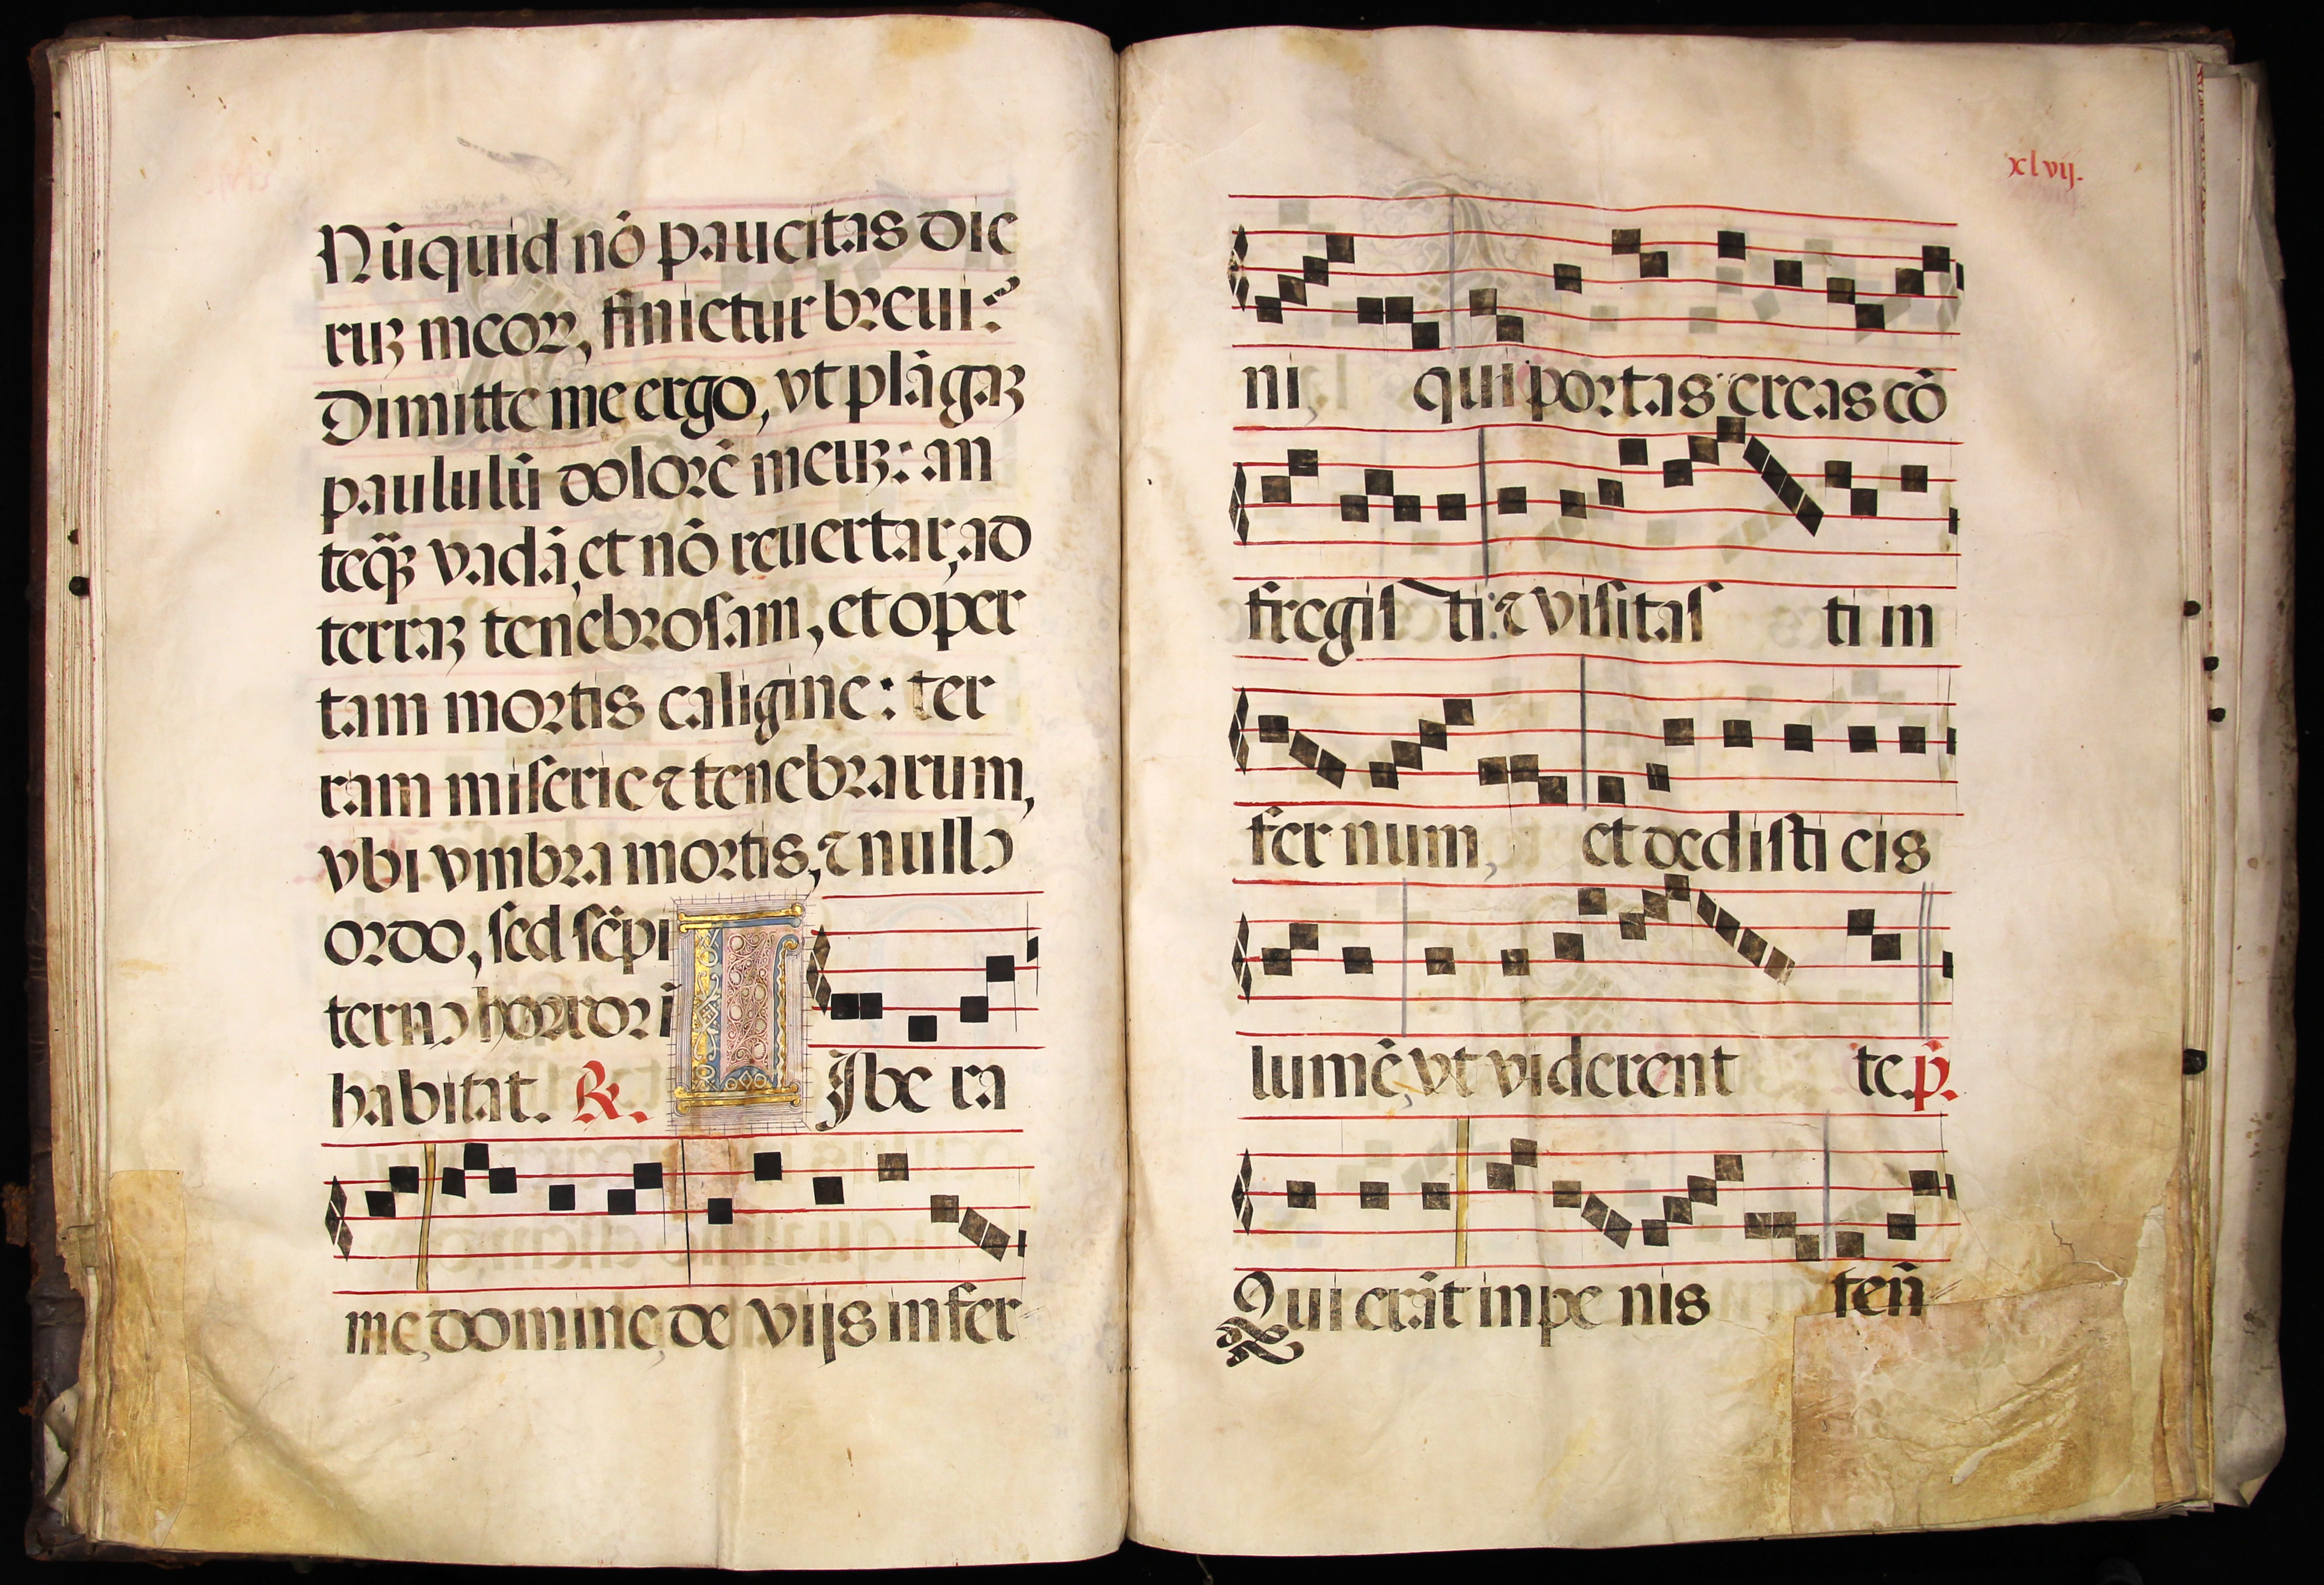 Nūquid nō paucitas die
ruȝ meoꝝ, finietur breui?
Dimitte me ergo, vt plāgaȝ
paululū dolorē meuȝ: an
teqȝ̄ vadā, et nō reuertar, ad
terraȝ tenebrosam, et oper
tam mortis caligine: ter
ram miserie ⁊ tenebrarum,
vbi vmbra mortis, ⁊ nullꝰ
ordo, sed sēpi
ternꝰ horror ī
habitat. ℟. LJbe ra
me, domine, de vijs infer
xlvij.
ni, qui portas ereas cō
fregiſ ti: ⁊ viſitaſ ti in
fer num, et dediſti eis
lumē, vt viderent te. p̄.
Qui erāt in pe nis ten̄